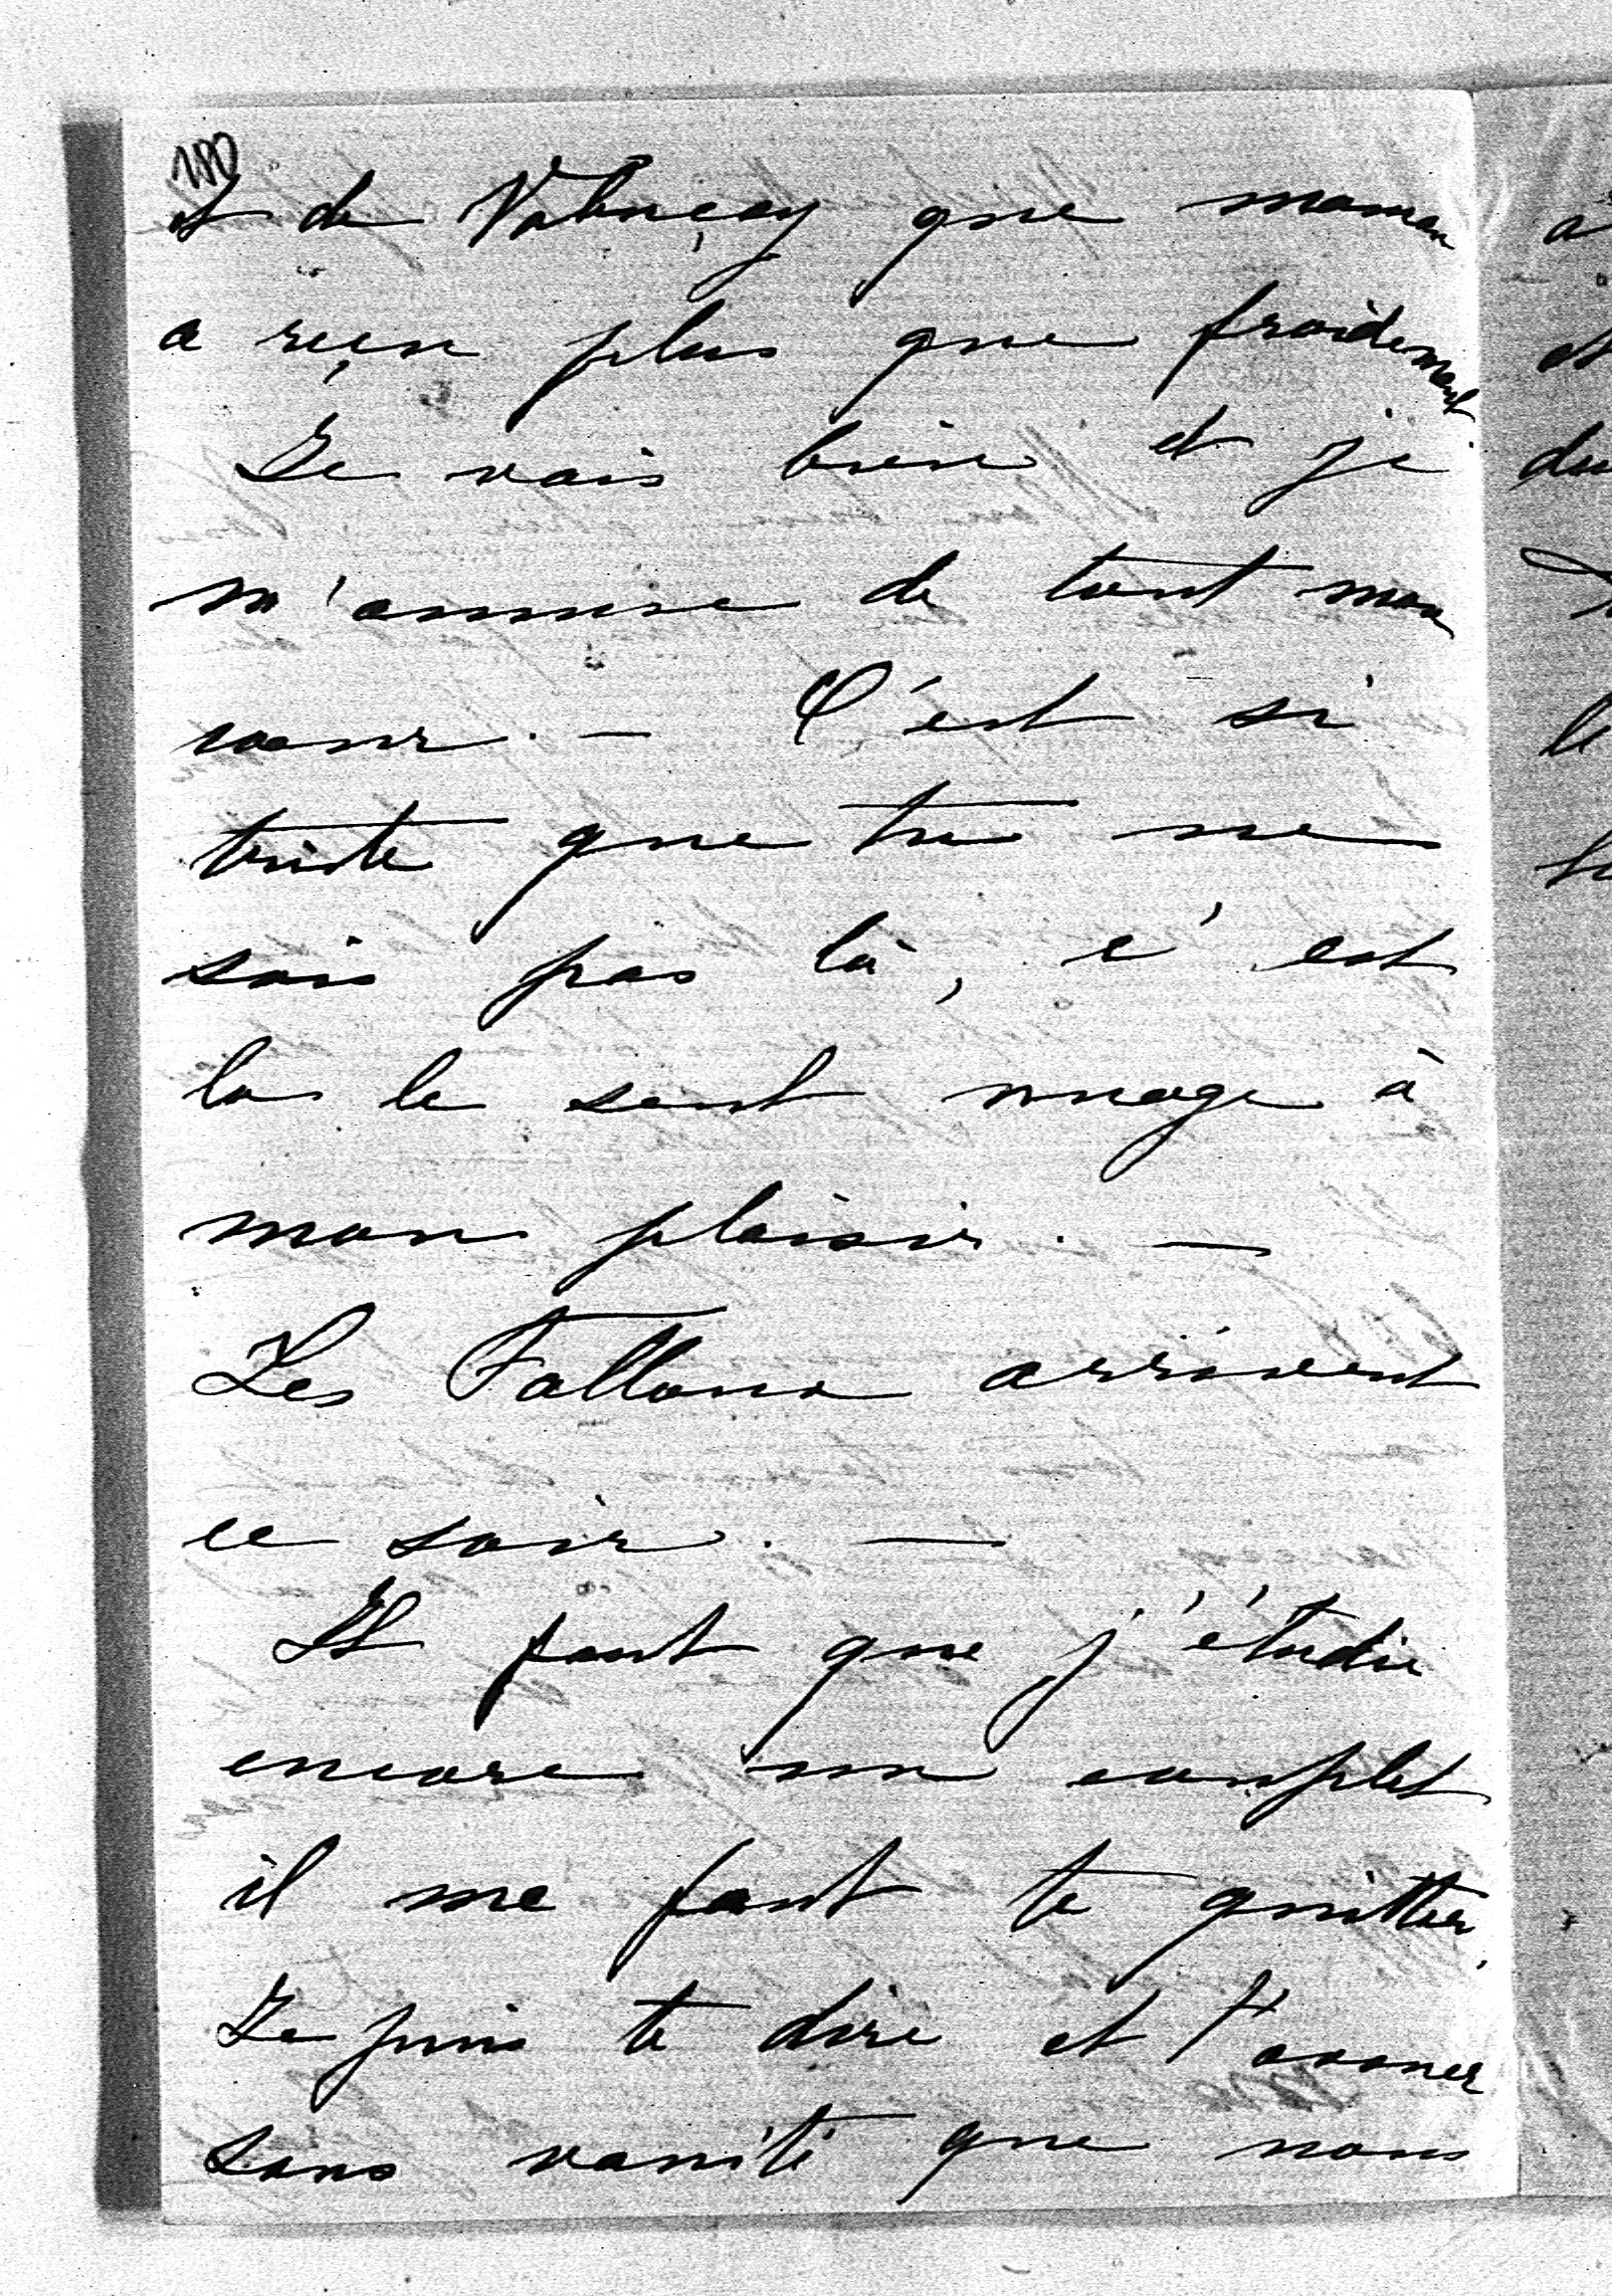 et de Valençay que maman
a reçu plus que froidement
Je vais bien et je
m'amuse de tout mon
coeur. — C'est si
triste que tu ne
sois pas là, c'est
là le seul nuage à
mon plaisir. —
Les arrivent
ce soir. —
Il faut que j'étudie
encore un couplet
il me faut te quitter.
Je puis te dire et t'avouer
sans vanité que nous